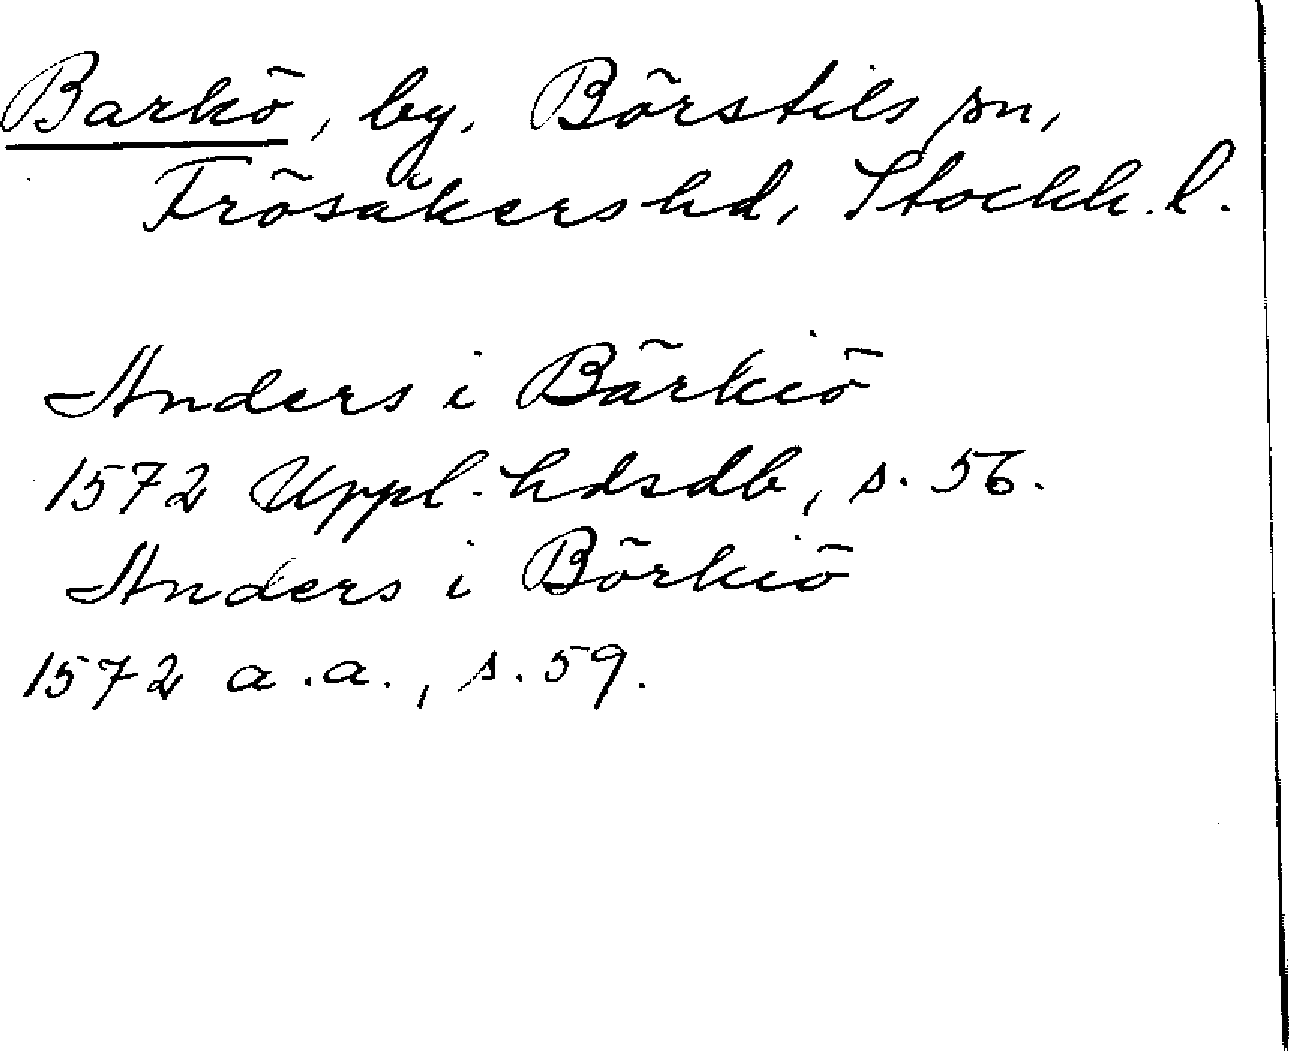 Barkö, by, Börstils sn,
Frösåkers hd, Stockh. l.
Anders i Bärkiö
1572 Uppl. hdsdb, s. 56.
Anders i Börkiö
1572 a.a., s. 59.